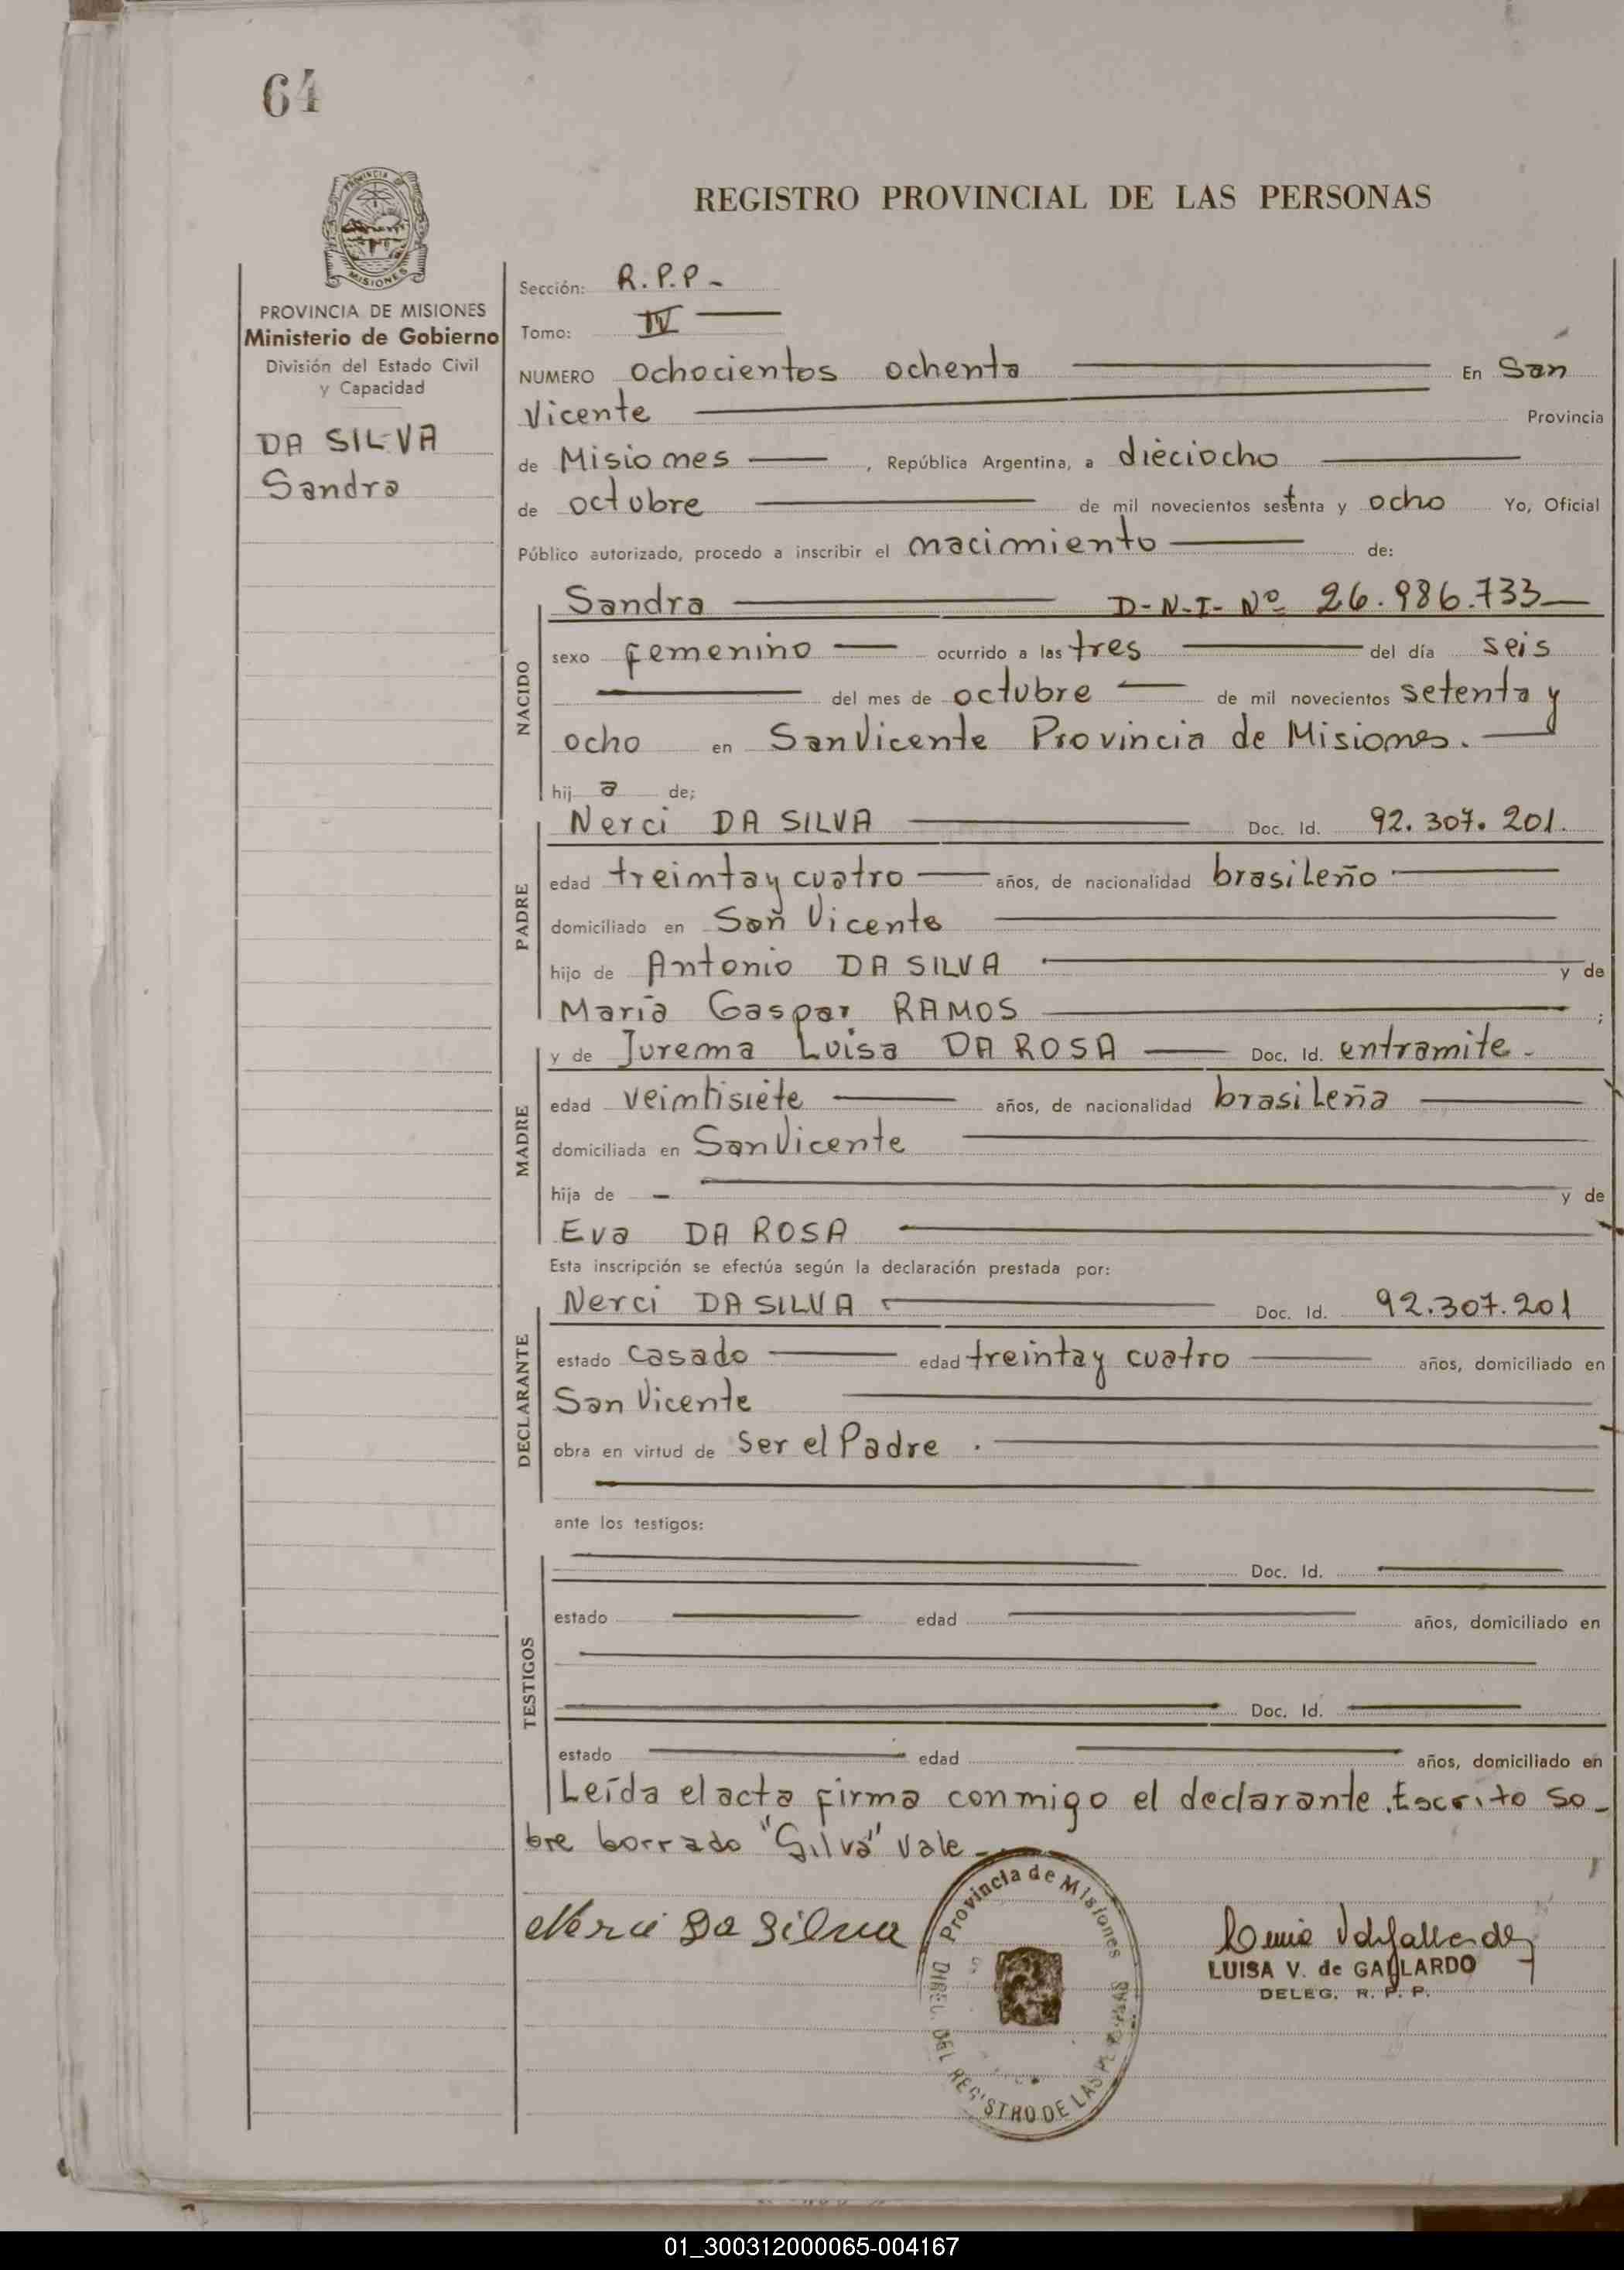 64
PROVINCIA
MISIONES
REGISTRO PROVINCIAL DE LAS PERSONAS
PROVINCIA DE MISIONES
Ministerio de Gobierno
División del Estado Civil
y Capacidad
DA SILVA
Sandra
Sección: R.P.P-
Tomo: IV
NUMERO ochocientos ochenta En San
Vicente Provincia
de Misiones , República Argentina, a dieciocho
de octubre de mil novecientos setenta y ocho Yo, Oficial
Público autorizado, procedo a inscribir el nacimiento de:
NACIDO
Sandra D-N-I- Nº 26.986.733
sexo femenino ocurrido a las tres del día seis
del mes de octubre de mil novecientos setenta y
ocho en San Vicente Provincia de Misiones.
hij a de;
PADRE
Nerci DA SILVA Doc. Id. 92.307.201.
edad treinta y cuatro años, de nacionalidad brasileño
domiciliado en San Vicente
hijo de Antonio DA SILVA y de
María Gaspar RAMOS ;
MADRE
y de Jurema Luisa DA ROSA Doc. Id. entramite.
edad veintisiete años, de nacionalidad brasileña
domiciliada en San Vicente
hija de - y de
Eva DA ROSA
Esta inscripción se efectúa según la declaración prestada por:
DECLARANTE
Nerci DA SILVA Doc. Id. 92.307.201
estado casado edad treinta y cuatro años, domiciliado en
San Vicente
obra en virtud de ser el Padre .
ante los testigos:
TESTIGOS
Doc. Id.
estado edad años, domiciliado en
Doc. Id.
estado edad años, domiciliado en
Leída el acta firma conmigo el declarante. Escrito so-
bre borrado "Silva" Vale-
Nerci Da Silva
Provincia de Misiones
DIREC. DEL REGISTRO DE LAS PERSONAS
LUISA V. de GALLARDO
DELEG. R. P. P.
01_300312000065-004167